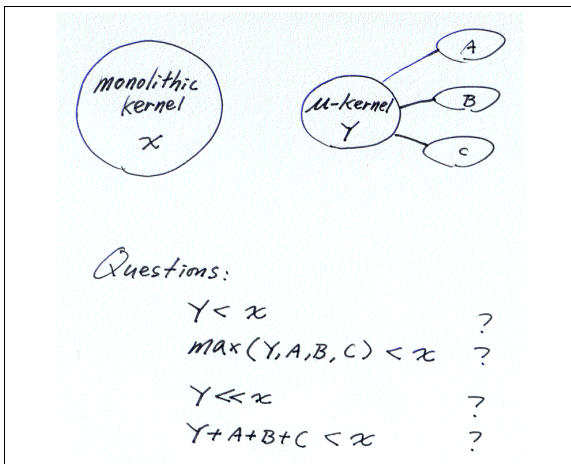 monolithic
kernel
x
μ-kernel
Y
A
B
C
Questions:
Y < x ?
max (Y, A, B, C) < x ?
Y << x ?
Y + A + B + C < x ?